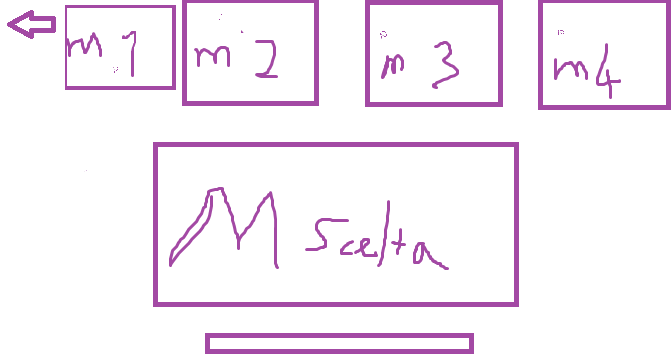 m 1 m 2 m 3 m4
M scelta